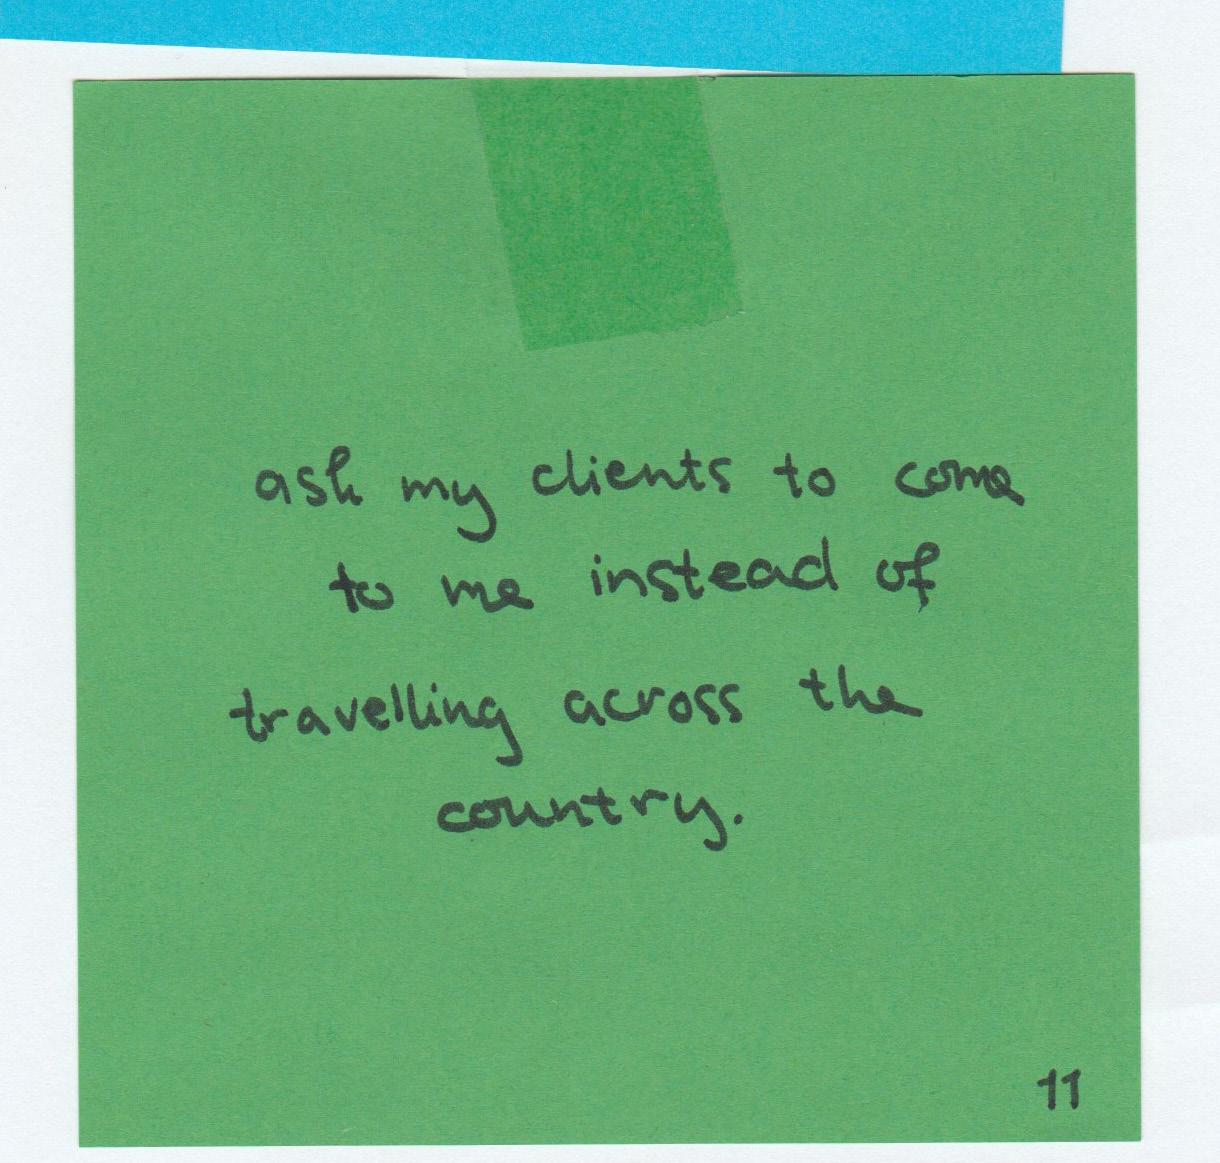 ask my clients to come
to me instead of
travelling across the
country.
11